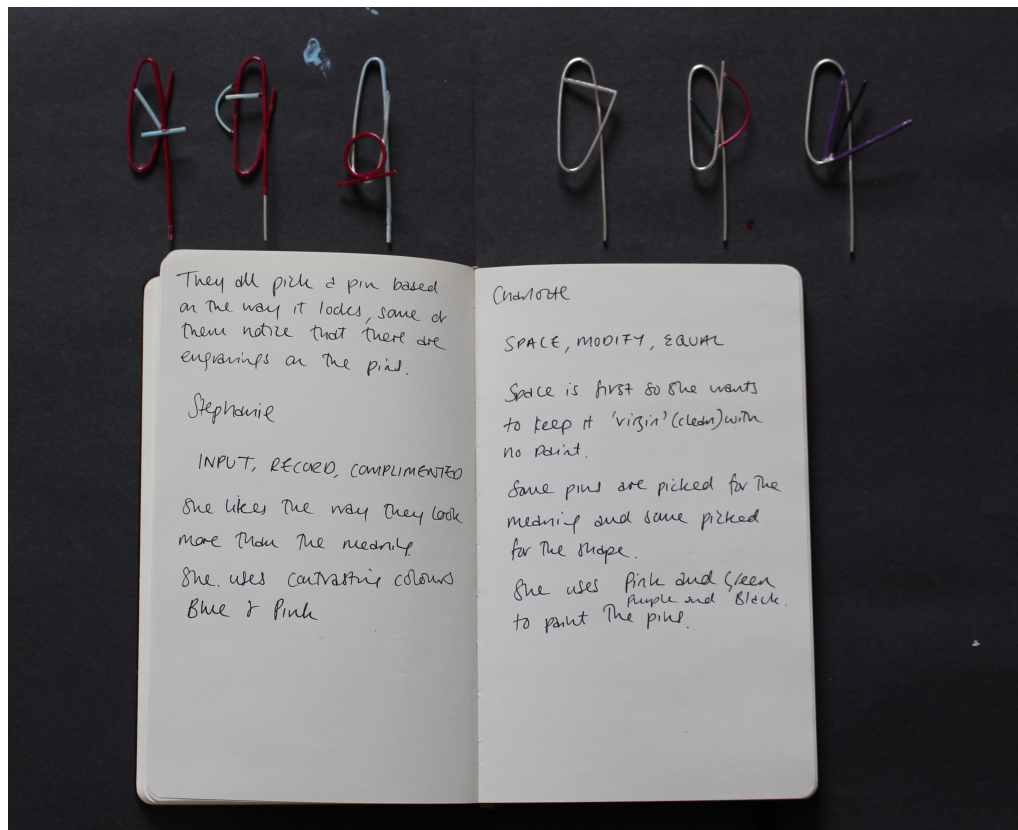 They all pick a pin based
on the way it looks, some of
them notice that there are
engravings on the pins.
Stephanie
INPUT, RECORD, COMPLIMENTED
She likes the way they look
more than the meaning.
She uses contrasting colours
Blue & Pink
Charlotte
SPACE, MODIFY, EQUAL
Space is first so she wants
to keep it 'virgin' (clean) with
no paint.
Some pins are picked for the
meaning and some picked
for the shape.
She uses Pink and Green
Purple and Black.
to paint the pins.